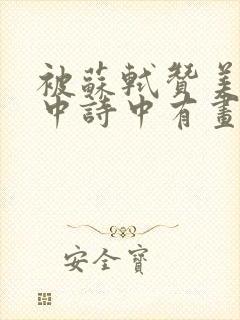 被蘇軾贊美
中詩中有畫
安全寶